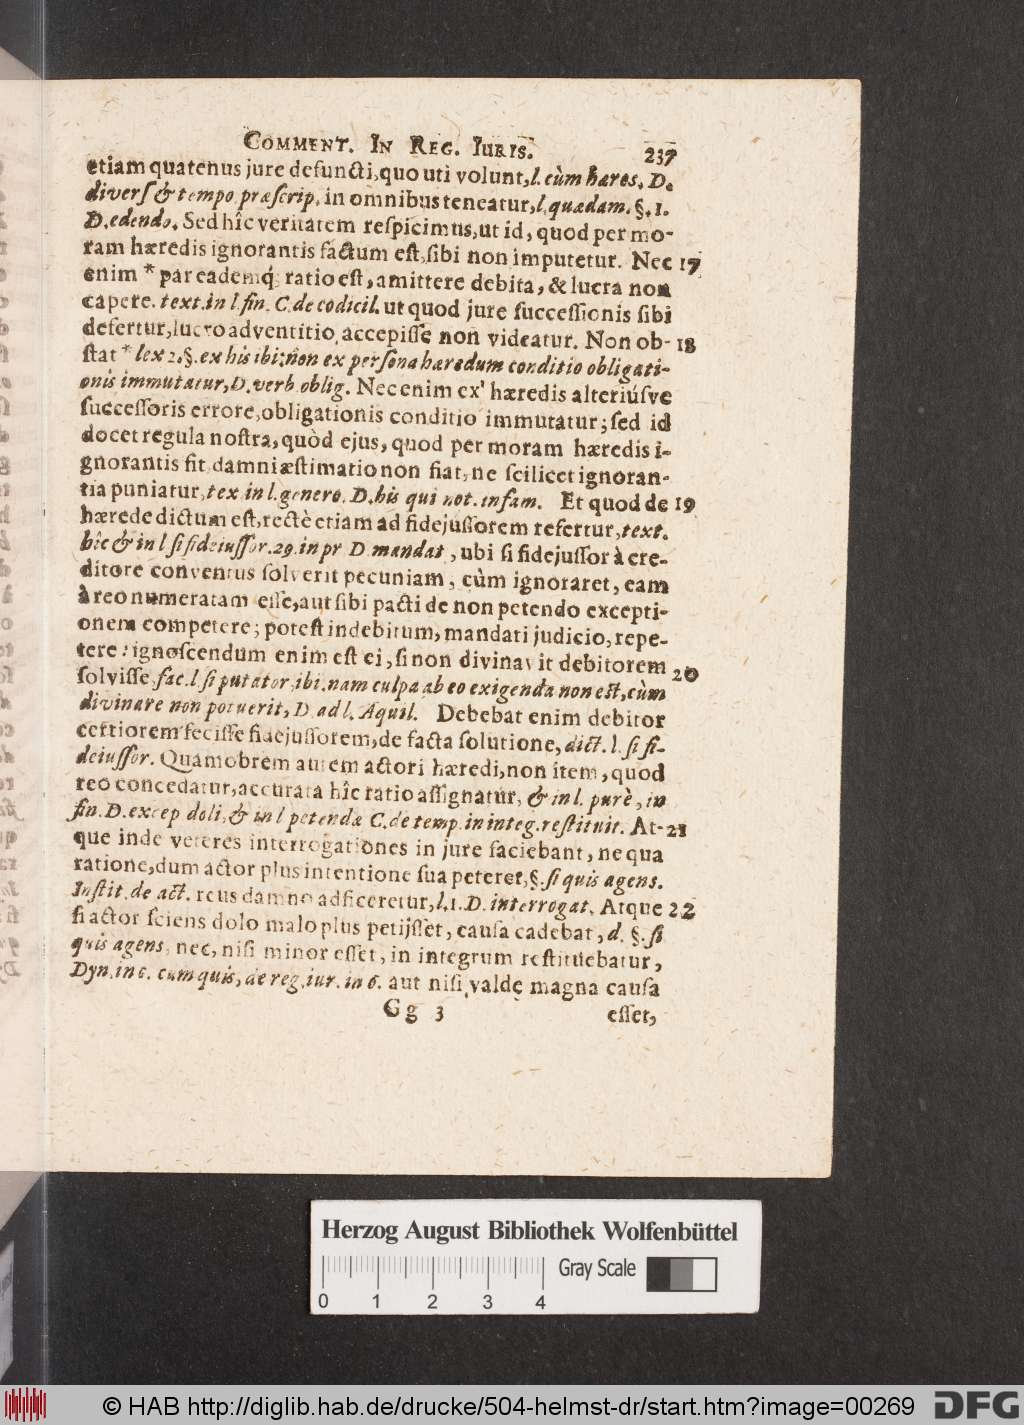 COMMENT. IN REG. IURIS. 237
etiam quatenus jure defuncti, quo uti volunt, l. cùm hæres. D.
divers & tempo præscrip. in omnibus teneatur, l. quædam. §. 1.
D. edendo. Sed hîc veritatem respicimus, ut id, quod per mo-
ram hæredis ignorantis factum est, sibi non imputetur. Nec 17
enim * par eademq; ratio est, amittere debita, & lucra non
capere. text. in l fin. C. de codicil. ut quod jure successionis sibi
defertur, lucro adventitio accepisse non videatur. Non ob- 18
stat * lex 2. §. ex his ibi: non ex persona hæredum conditio obligati-
onis immutatur, D. verb oblig. Nec enim ex hæredis alteriúsve
successoris errore, obligationis conditio immutatur; sed id
docet regula nostra, quòd ejus, quod per moram hæredis i-
gnorantis fit, damni æstimatio non fiat, ne scilicet ignoran-
tia puniatur, tex. in l. genero. D. his qui not. infam. Et quod de 19
hærede dictum est, rectè etiam ad fidejussorem refertur, text.
hîc & in l si fideiussor. 29. in pr D mandat, ubi si fidejussor à cre-
ditore conventus solverit pecuniam, cùm ignoraret, eam
à reo numeratam esse, aut sibi pacti de non petendo excepti-
onem competere; potest indebitum, mandati judicio, repe-
tere: ignoscendum enim est ei, si non divinavit debitorem 20
solvisse, fac. l si putator, ibi. nam culpa ab eo exigenda non est, cùm
divinare non potuerit, D. ad l. Aquil. Debebat enim debitor
certiorem fecisse fidejussorem, de facta solutione, dict. l. si fi-
deiussor. Quamobrem autem actori hæredi, non item, quod
reo concedatur, accurata hîc ratio assignatur, & in l. purè, in
fin. D. excep doli, & in l petendæ C. de temp. in integ. restituit. At- 21
que inde veteres interrogationes in jure faciebant, ne qua
ratione, dum actor plus intentione sua peteret, §. si quis agens.
Instit. de act. reus damno adficeretur, l. 1. D. interrogat. Atque 22
si actor sciens dolo malo plus petijsset, causa cadebat, d. §. si
quis agens, nec, nisi minor esset, in integrum restituebatur,
Dyn. in c. cum quis, de reg. iur. in 6. aut nisi valde magna causa
Gg 3 esset,
Herzog August Bibliothek Wolfenbüttel
Gray Scale
0 1 2 3 4
© HAB http://diglib.hab.de/drucke/504-helmst-dr/start.htm?image=00269
DFG